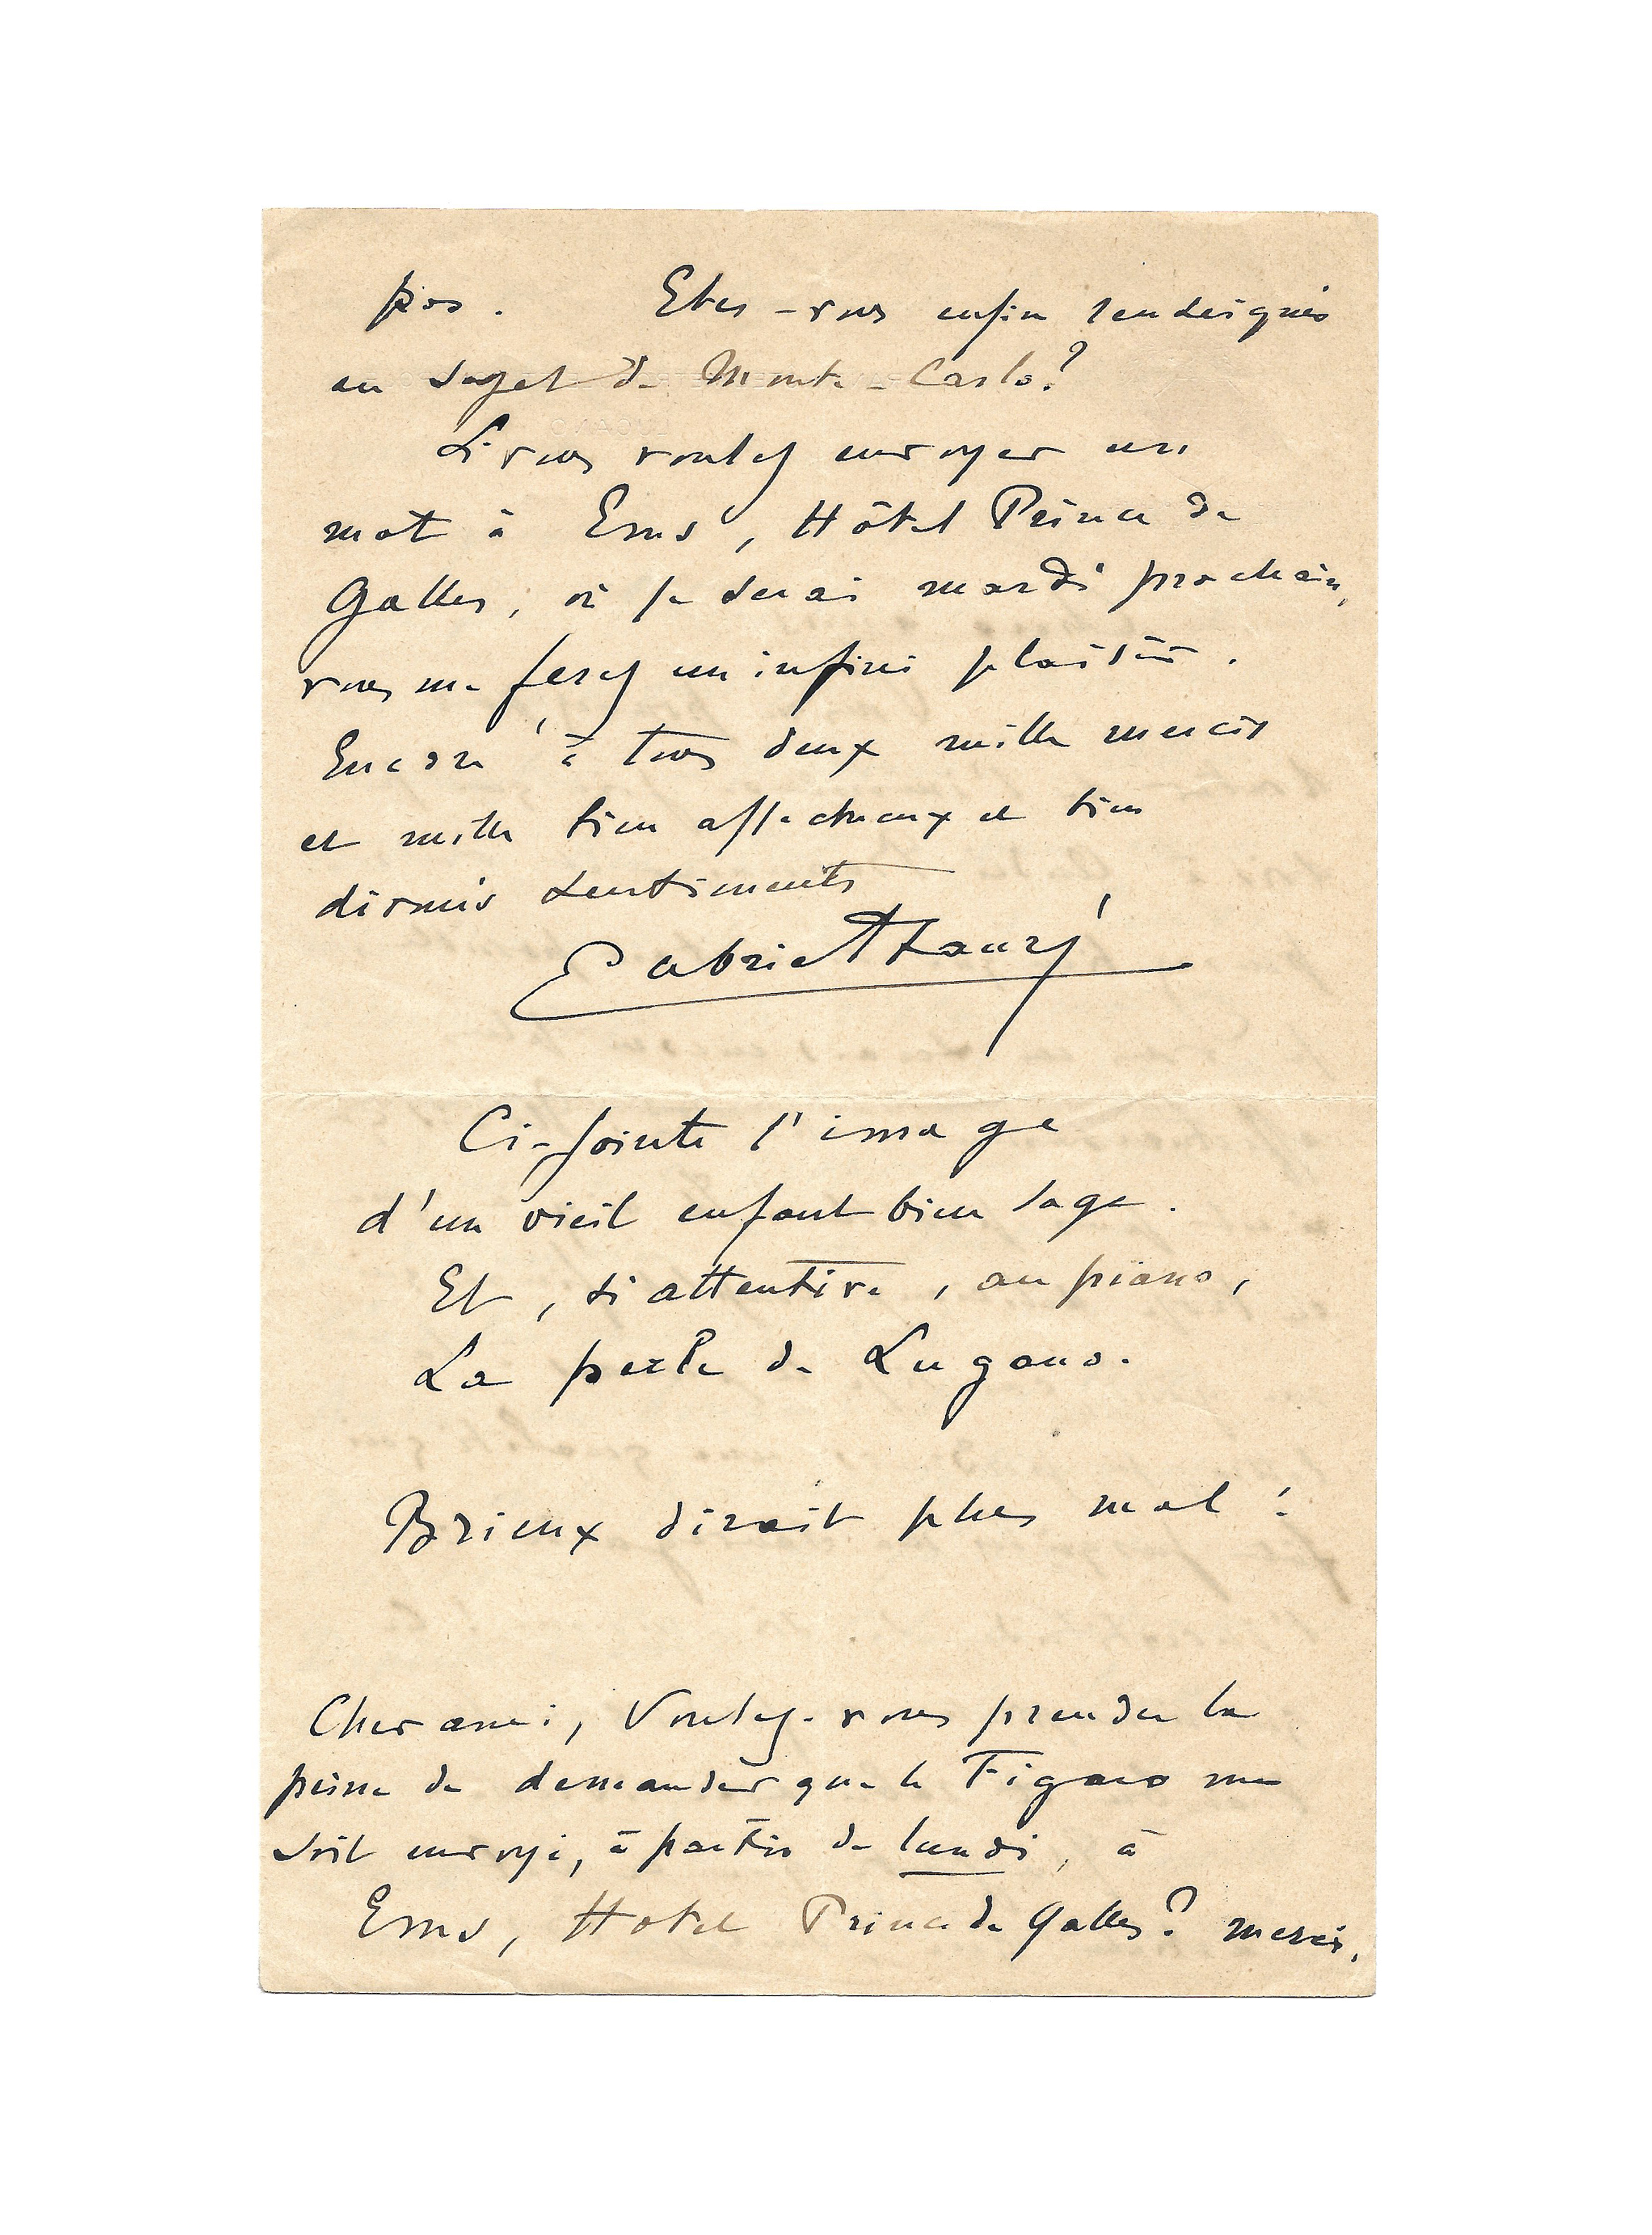 pas. Etes-vous enfin renseignés
au sujet de Monte-Carlo?
Si vous voulez envoyer un
mot à Ems, Hôtel Prince de
Galles, où je serai mardi prochain,
vous me ferez un infini plaisir.
Encore à tous deux mille mercis
et mille bien affectueux et bien
dévoués sentiments
Gabriel Fauré
Ci-jointe l'image
d'un vieil enfant bien sage.
Et, si attentive, au piano,
La perle de Lugano.
Brieux dirait plus mal!
Cher ami, Voulez-vous prendre la
peine de demander que le Figaro me
soit envoyé, à partir de lundi, à
Ems, Hotel Prince de Galles? merci.